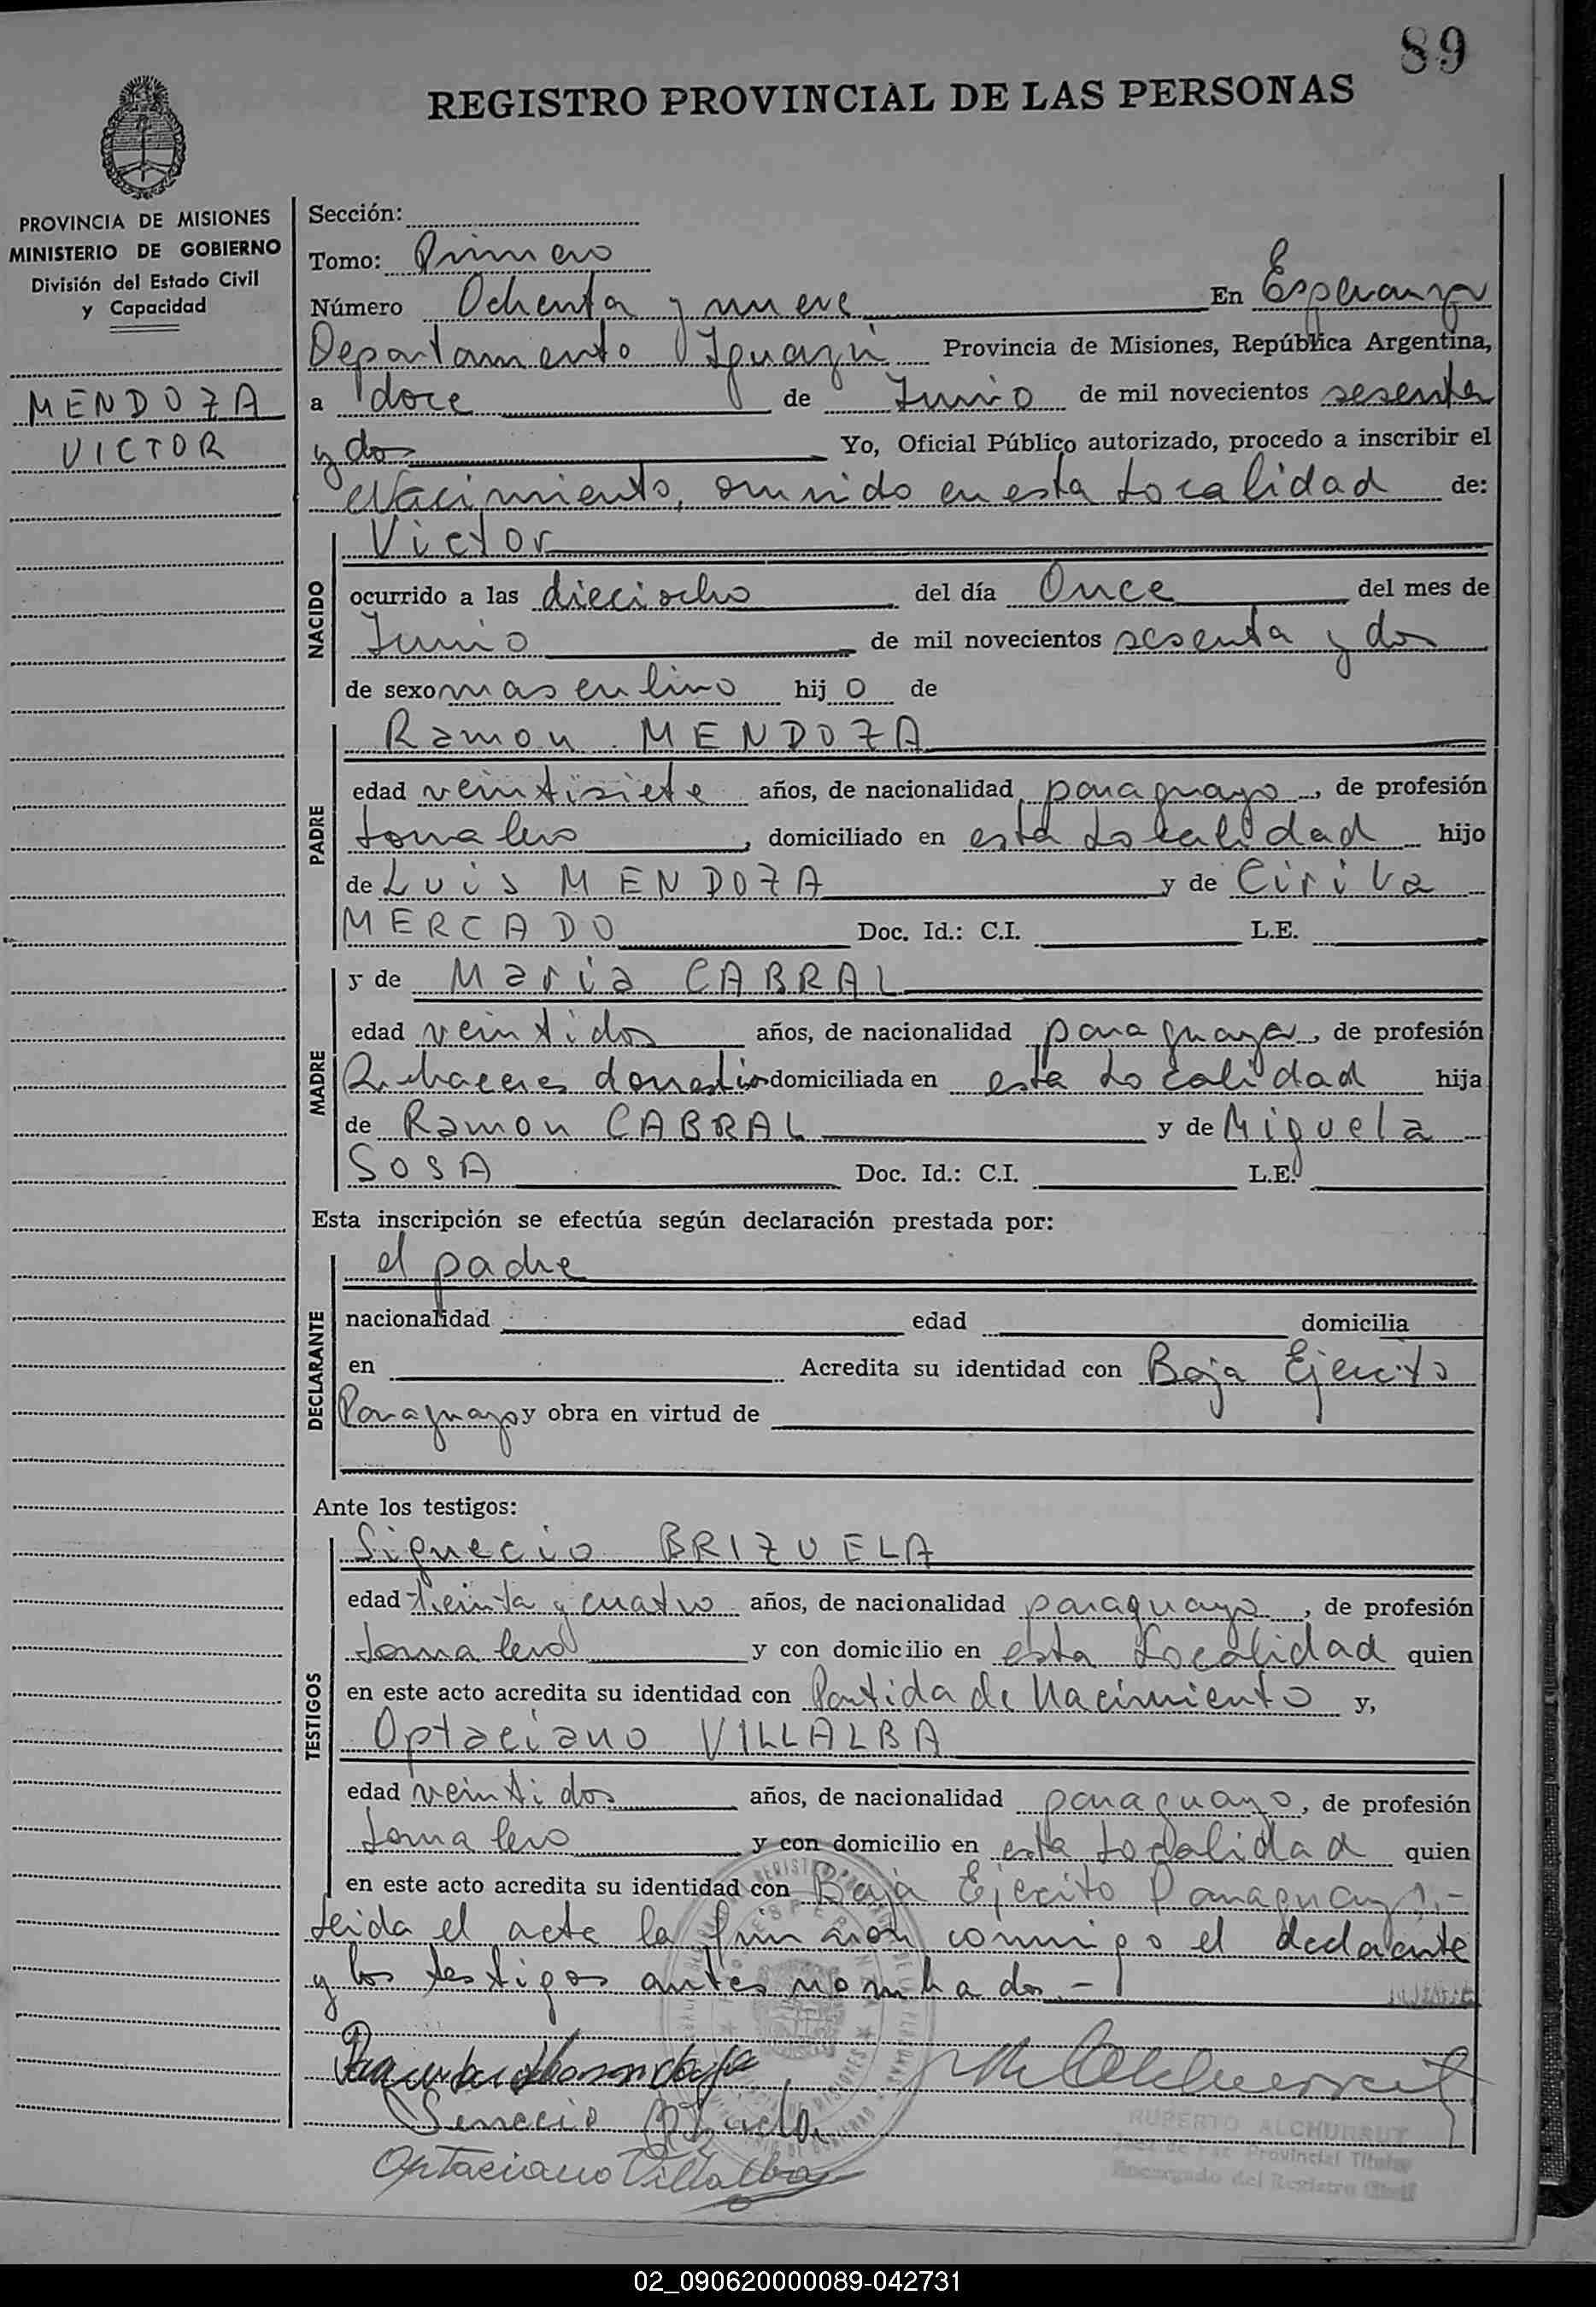 89
REGISTRO PROVINCIAL DE LAS PERSONAS
PROVINCIA DE MISIONES
MINISTERIO DE GOBIERNO
División del Estado Civil
y Capacidad
MENDOZA
VICTOR
Sección:
Tomo: Primero
Número Ochenta y nueve En Esperanza
Departamento Iguazú Provincia de Misiones, República Argentina,
a doce de Junio de mil novecientos sesenta
y dos Yo, Oficial Público autorizado, procedo a inscribir el
Nacimiento, ocurrido en esta Localidad de:
NACIDO
Victor
ocurrido a las dieciocho del día Once del mes de
Junio de mil novecientos sesenta y dos
de sexo masculino hijo de
PADRE
Ramon MENDOZA
edad veintisiete años, de nacionalidad paraguayo, de profesión
Jornalero, domiciliado en esta Localidad hijo
de Luis MENDOZA y de Cirila
MERCADO Doc. Id.: C.I. L.E.
MADRE
y de Maria CABRAL
edad veintidos años, de nacionalidad paraguaya, de profesión
Quehaceres domesticos domiciliada en esta Localidad hija
de Ramon CABRAL y de Miguela
SOSA Doc. Id.: C.I. L.E.
Esta inscripción se efectúa según declaración prestada por:
DECLARANTE
el padre
nacionalidad edad domicilia
en Acredita su identidad con Baja Ejercito
Paraguayo y obra en virtud de
Ante los testigos:
TESTIGOS
Siguecio BRIZUELA
edad treinta y cuatro años, de nacionalidad paraguayo, de profesión
Jornalero y con domicilio en esta Localidad quien
en este acto acredita su identidad con Partida de Nacimiento y,
Optaciano VILLALBA
edad veintidos años, de nacionalidad paraguayo, de profesión
Jornalero y con domicilio en esta Localidad quien
en este acto acredita su identidad con Baja Ejercito Paraguayo.-
Leida el acta la firman conmigo el declarante
y los testigos antes nombrados.-
Optaciano Villalba
RUPERTO ALCHURRUT
Juez de Paz Provincial Titular
Encargado del Registro Civil
02_090620000089-042731